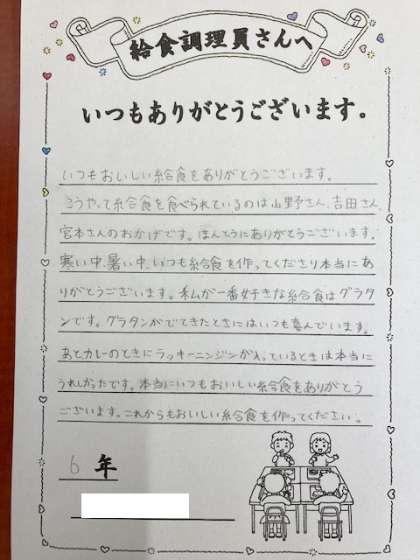 給食調理員さんへ
いつもありがとうございます。
いつもおいしい給食をありがとうございます。
こうやって給食を食べられているのは山野さん、吉田さん、
宮本さんのおかげです。ほんとうにありがとうございます。
寒い中、暑い中、いつも給食を作ってくださり本当にあ
りがとうございます。私が一番好きな給食はグラタ
ンです。グラタンがでてきたときにはいつも喜んでいます。
あとカレーのときにラッキーニンジンが入っているときは本当に
うれしかったです。本当にいつもおいしい給食をありがとう
ございます。これからもおいしい給食を作ってください。
6年